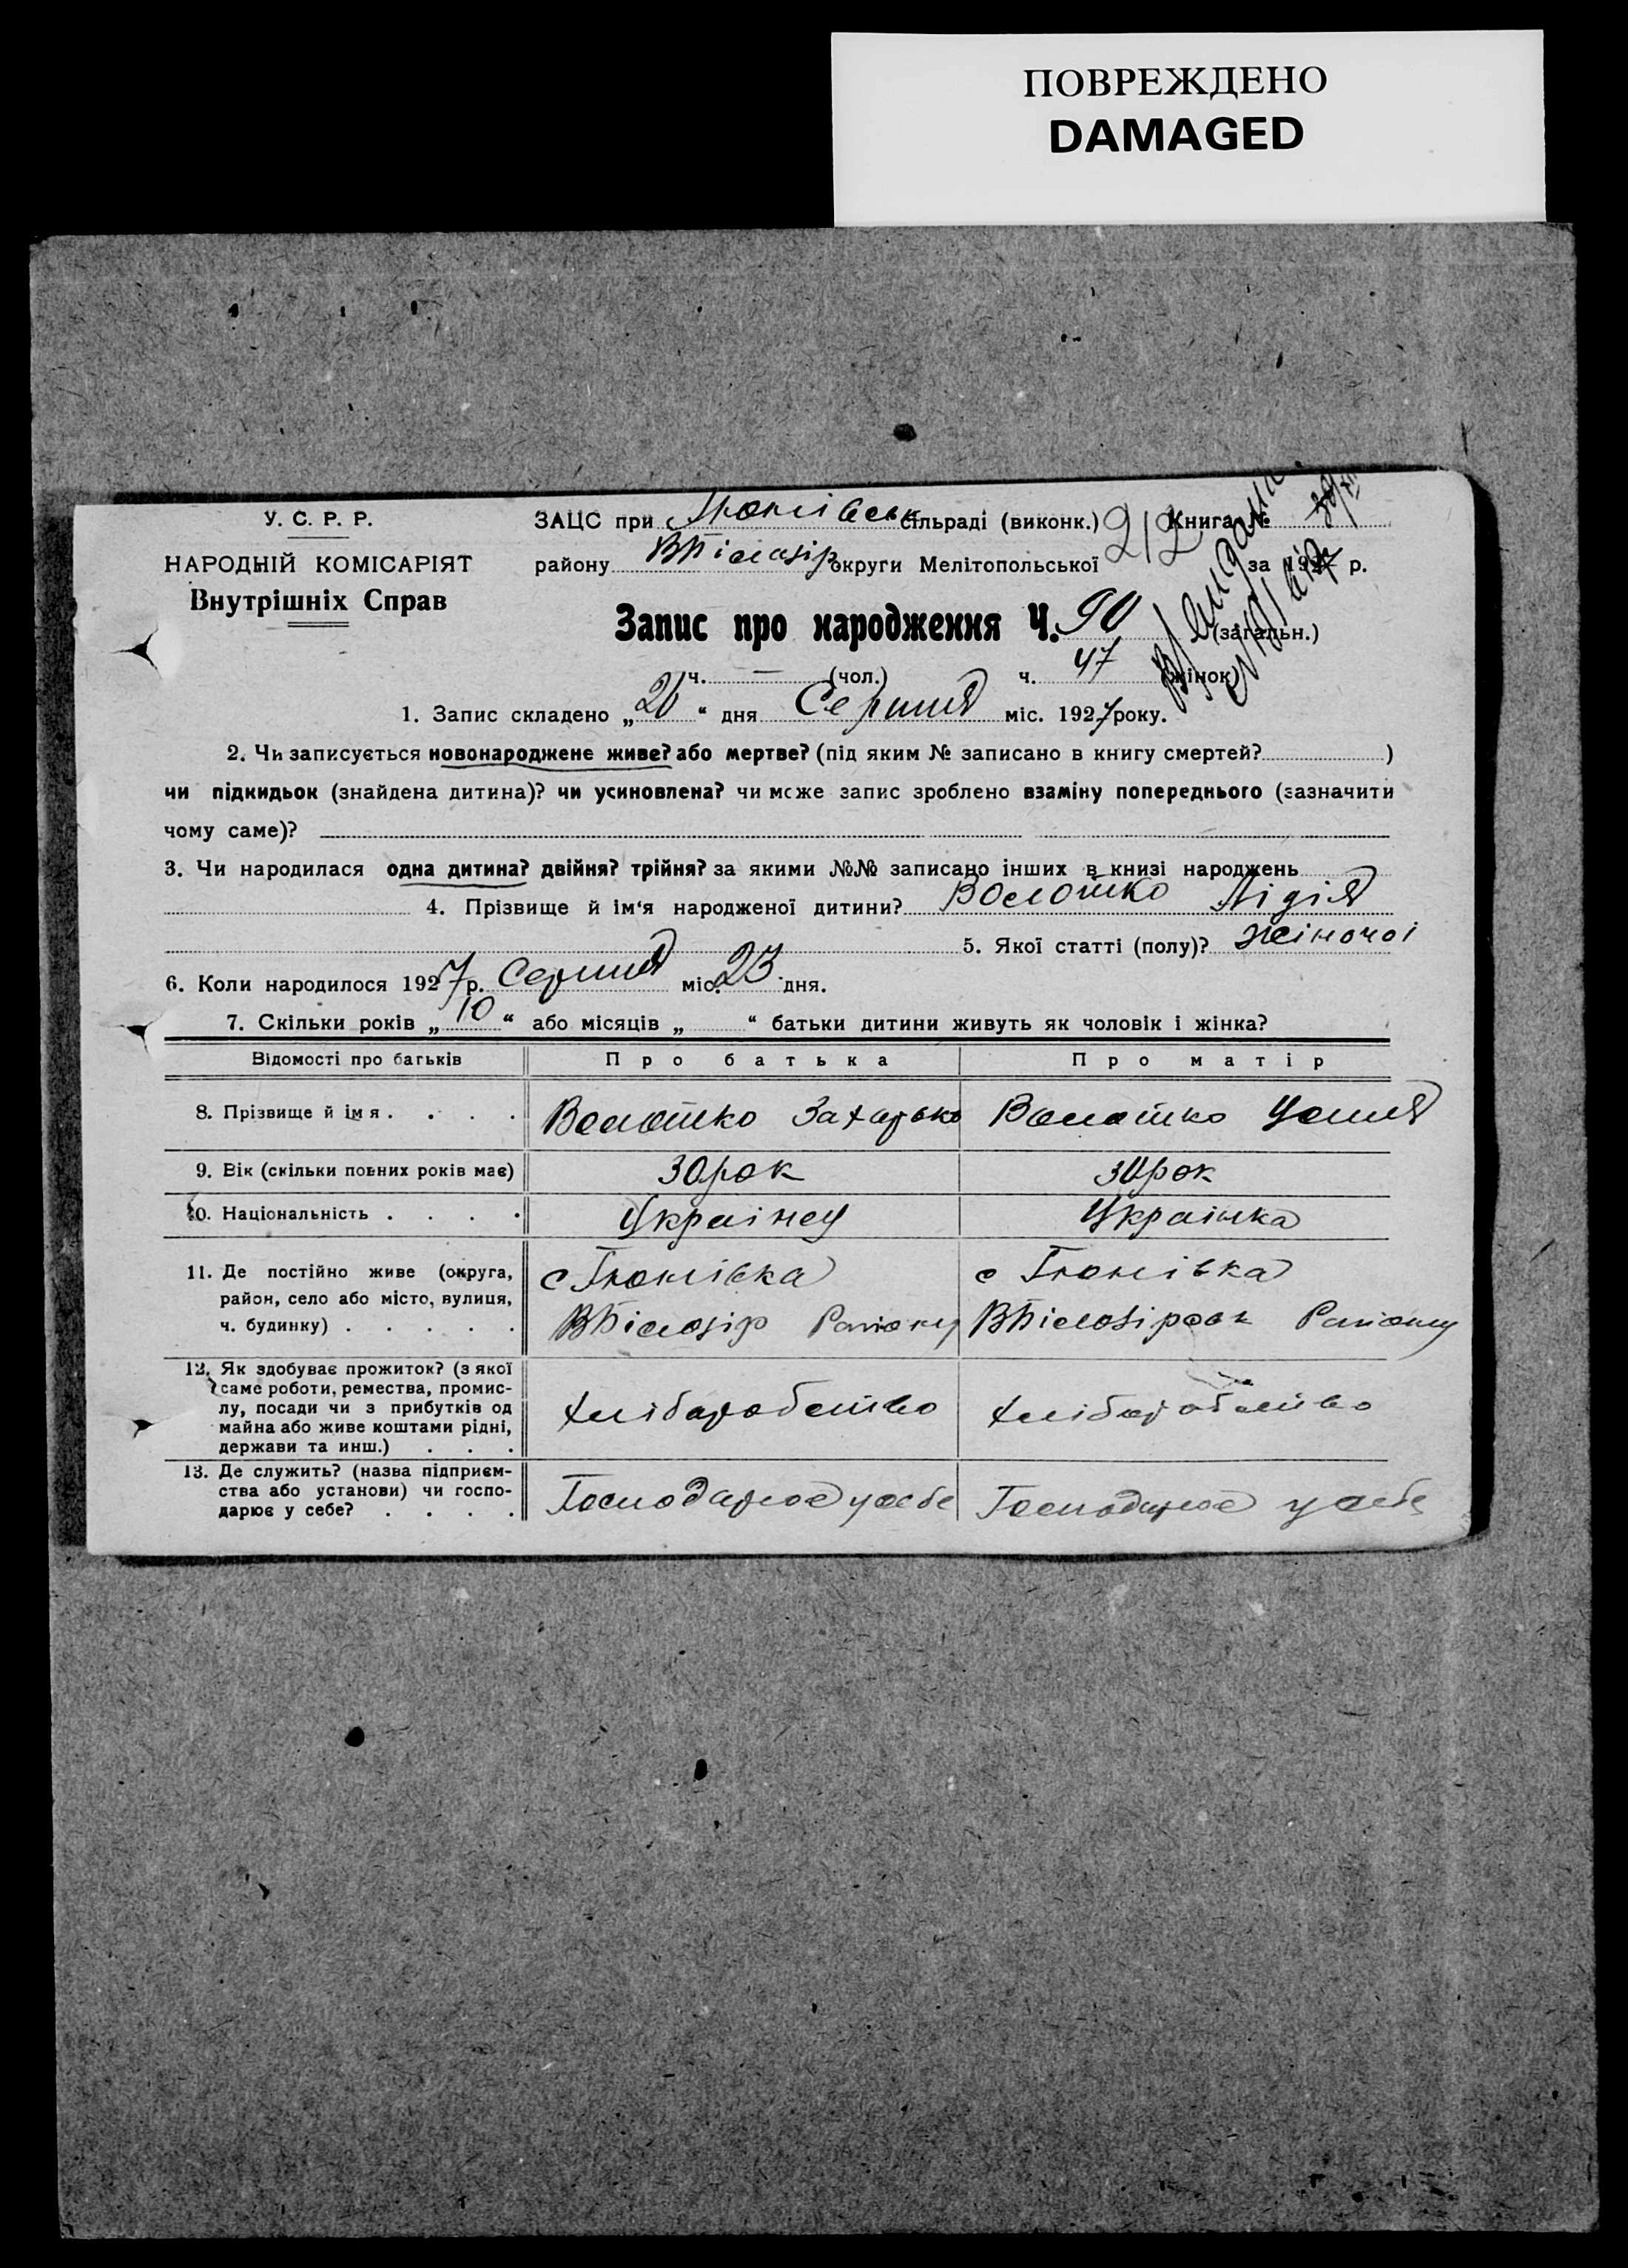 ПОВРЕЖДЕНО
DAMAGED
У. С. Р. Р.
НАРОДНІЙ КОМІСАРІЯТ
Внутрішніх Справ
ЗАЦС при сільраді (виконк.) 212 Книга №
району ВБілозір округи Мелітопольської за 1927 р.
Запис про народження Ч. 90 (загальн.)
ч. — (чол.) ч. 47 (жінок)
1. Запис складено „26“ дня Серпня міс. 1927 року.
2. Чи записується новонароджене живе? або мертве? (під яким № записано в книгу смертей? )
чи підкидьок (знайдена дитина)? чи усиновлена? чи може запис зроблено взаміну попереднього (зазначити
чому саме)?
3. Чи народилася одна дитина? двійня? трійня? за якими №№ записано інших в книзі народжень
4. Прізвище й ім‘я народженої дитини? Волошко Лідія
5. Якої статті (полу)? жіночоі
6. Коли народилося 1927 р. Серпня міс. 23 дня.
7. Скільки років „10“ або місяців „ “ батьки дитини живуть як чоловік і жінка?
Відомості про батьків Про батька Про матір
8. Прізвище й імя . . . . Волошко Захарько Волошко Уляня
9. Вік (скільки повних років має) 30 рок 30 рок
10. Національність . . . . Украінец Украінка
11. Де постійно живе (округа,
район, село або місто, вулиця,
ч. будинку) . . . . .
ВБілозір Району ВБілозірськ Району
12. Як здобуває прожиток? (з якої
саме роботи, ремества, промис-
лу, посади чи з прибутків од
майна або живе коштами рідні,
держави та инш.) . . .
хліборобство хліборобство
13. Де служить? (назва підприєм-
ства або установи) чи госпо-
дарює у себе? . . . .
Господарює у себе Господарює у себе